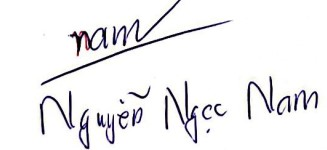 nam
Nguyễn Ngọc Nam